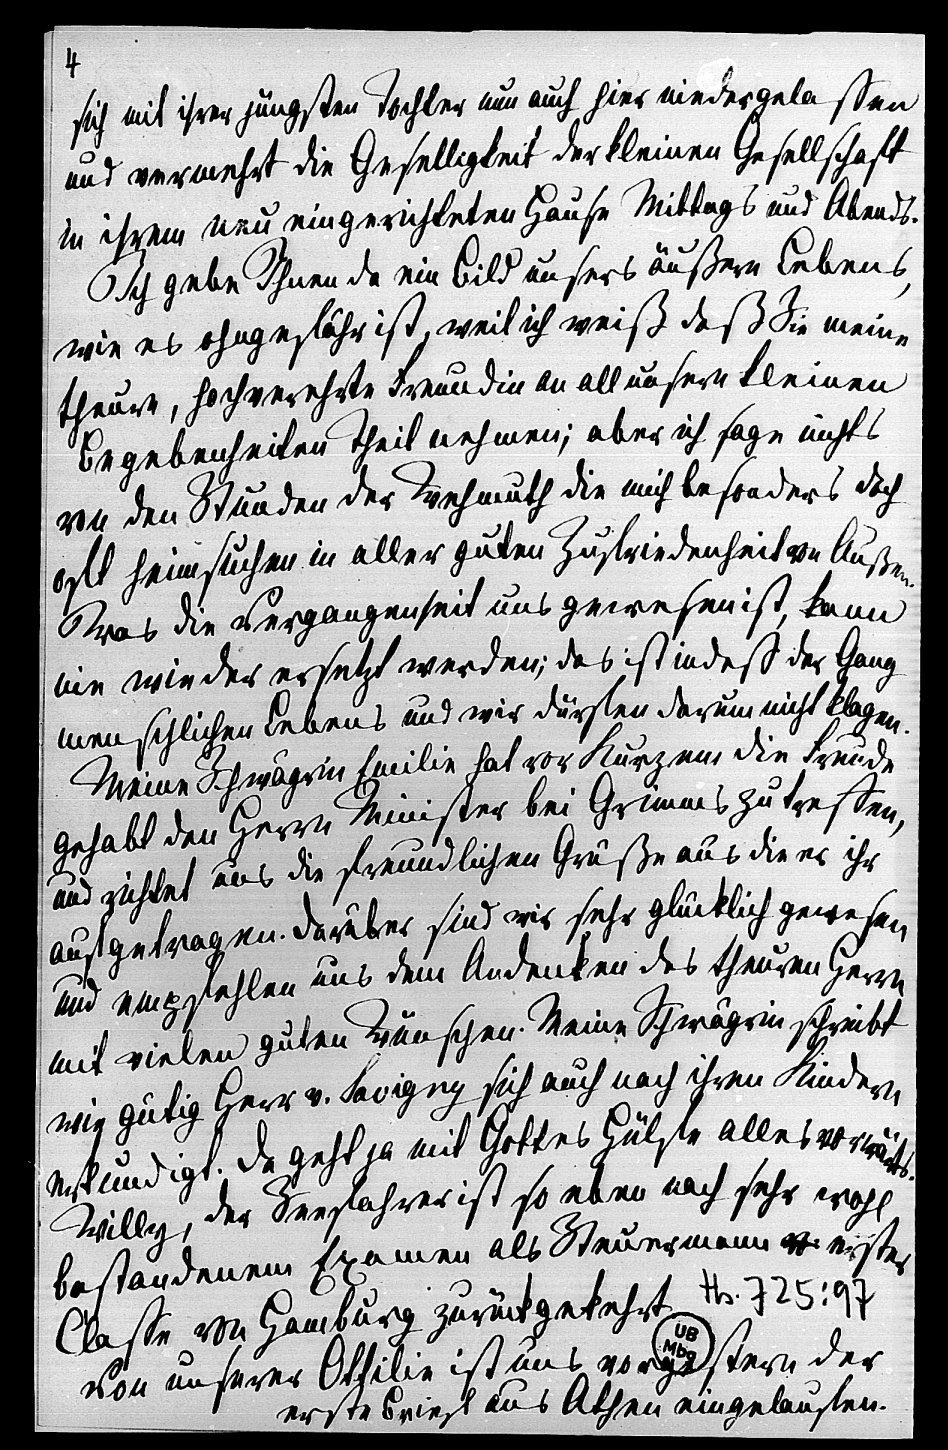 4
sich mit ihrer jüngsten Tochter nun auch hier niedergelassen
und vermehrt die Geselligkeit der kleinen Gesellschaft
in ihrem neu eingerichteten Hause Mittags und Abends.
Ich gebe Ihnen da ein Bild unsers äußern Lebens,
wie es ohngefähr ist, weil ich weiß daß Sie meine
theure, hochverehrte Freundin an all unsern kleinen
Begebenheiten Theil nehmen; aber ich sage nichts
von den Stunden der Wehmuth die mich besonders doch
oft heimsuchen in aller guten Zufriedenheit von Außen.
Was die Vergangenheit uns gewesen ist, kann
nie wieder ersetzt werden; das ist indeß der Gang
menschlichen Lebens und wir dürfen darum nicht klagen.
Meine Schwägrin Emilie hat vor Kurzem die Freude
gehabt den Herrn Minister bei Grimms zu treffen,
und richtet uns die freundlichen Grüße aus die er ihr
aufgetragen. Darüber sind wir sehr glücklich gewesen
und empfehlen uns dem Andenken des theuren Herrn
mit vielen guten Wünschen. Meine Schwägrin schreibt
wie gütig Herr v. Savigny sich auch nach ihren Kindern
erkundigt. Da geht ja mit Gottes Hülfe alles vorwärts.
Willy, der Seefahrer ist so eben nach sehr wohl
bestandenem Examen als Steuermann erster
Classe von Hamburg zurückgekehrt
Hs. 725:97
UB
Mbg
Von unserer Othilie ist uns vorgestern der
erste Brief aus Athen eingelaufen.